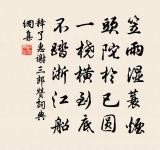 笠雨濕蓑煙
頭陀於已圓
一橈橫到底
不踏浙江船
釋了惠謝三郎贊詞典
網集